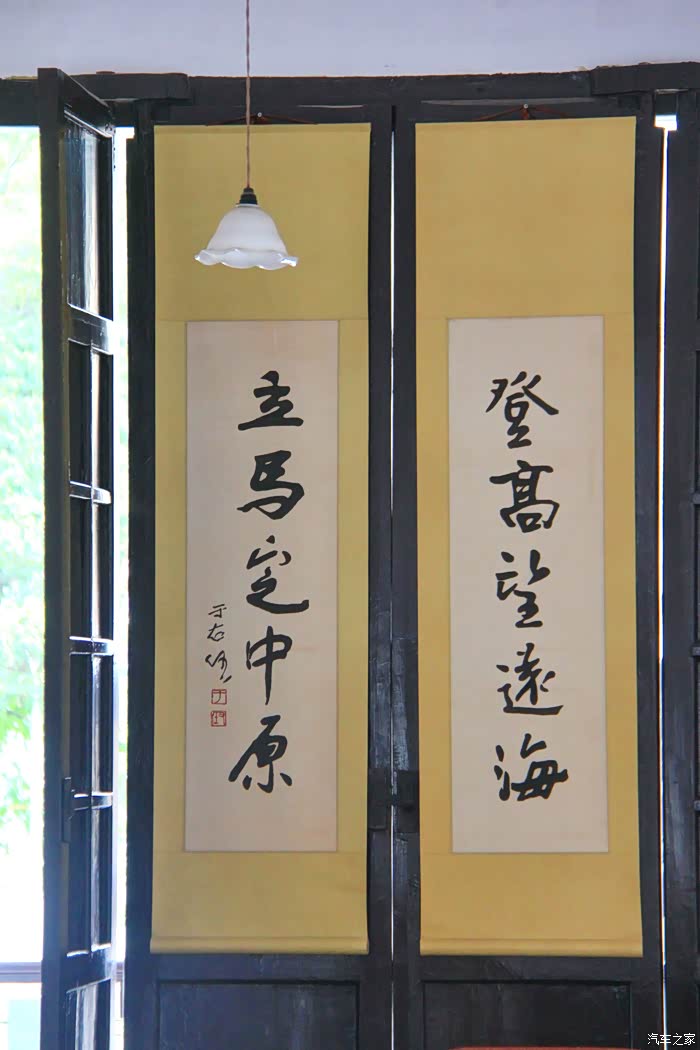 登高望遠海
立馬定中原
于右任
汽车之家